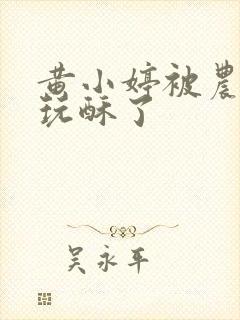 黄小婷被農
玩酥了
吴永平